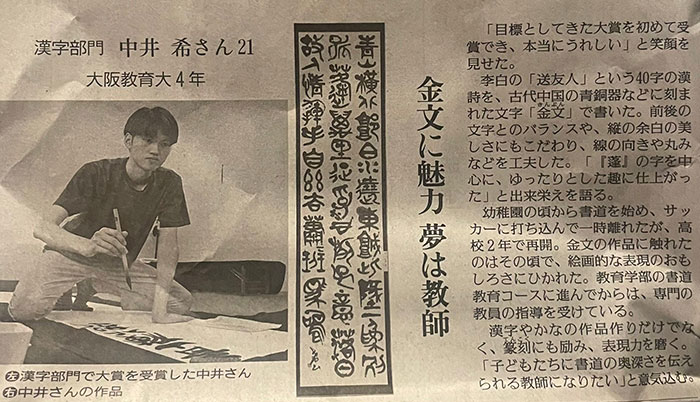 漢字部門 中井 希さん21
大阪教育大4年
㊧漢字部門で大賞を受賞した中井さん
㊨中井さんの作品
金文に魅力 夢は教師
「目標としてきた大賞を初めて受
賞でき、本当にうれしい」と笑顔を
見せた。
李白の「送友人」という40字の漢
詩を、古代中国の青銅器などに刻ま
れた文字「金文」で書いた。前後の
文字とのバランスや、縦の余白の美
しさにもこだわり、線の向きや丸み
などを工夫した。「『蓬』の字を中
心に、ゆったりとした趣に仕上がっ
た」と出来栄えを語る。
幼稚園の頃から書道を始め、サッ
カーに打ち込んで一時離れたが、高
校2年で再開。金文の作品に触れた
のはその頃で、絵画的な表現のおも
しろさにひかれた。教育学部の書道
教育コースに進んでからは、専門の
教員の指導を受けている。
漢字やかなの作品作りだけでな
く、篆刻にも励み、表現力を磨く。
「子どもたちに書道の奥深さを伝え
られる教師になりたい」と意気込む。